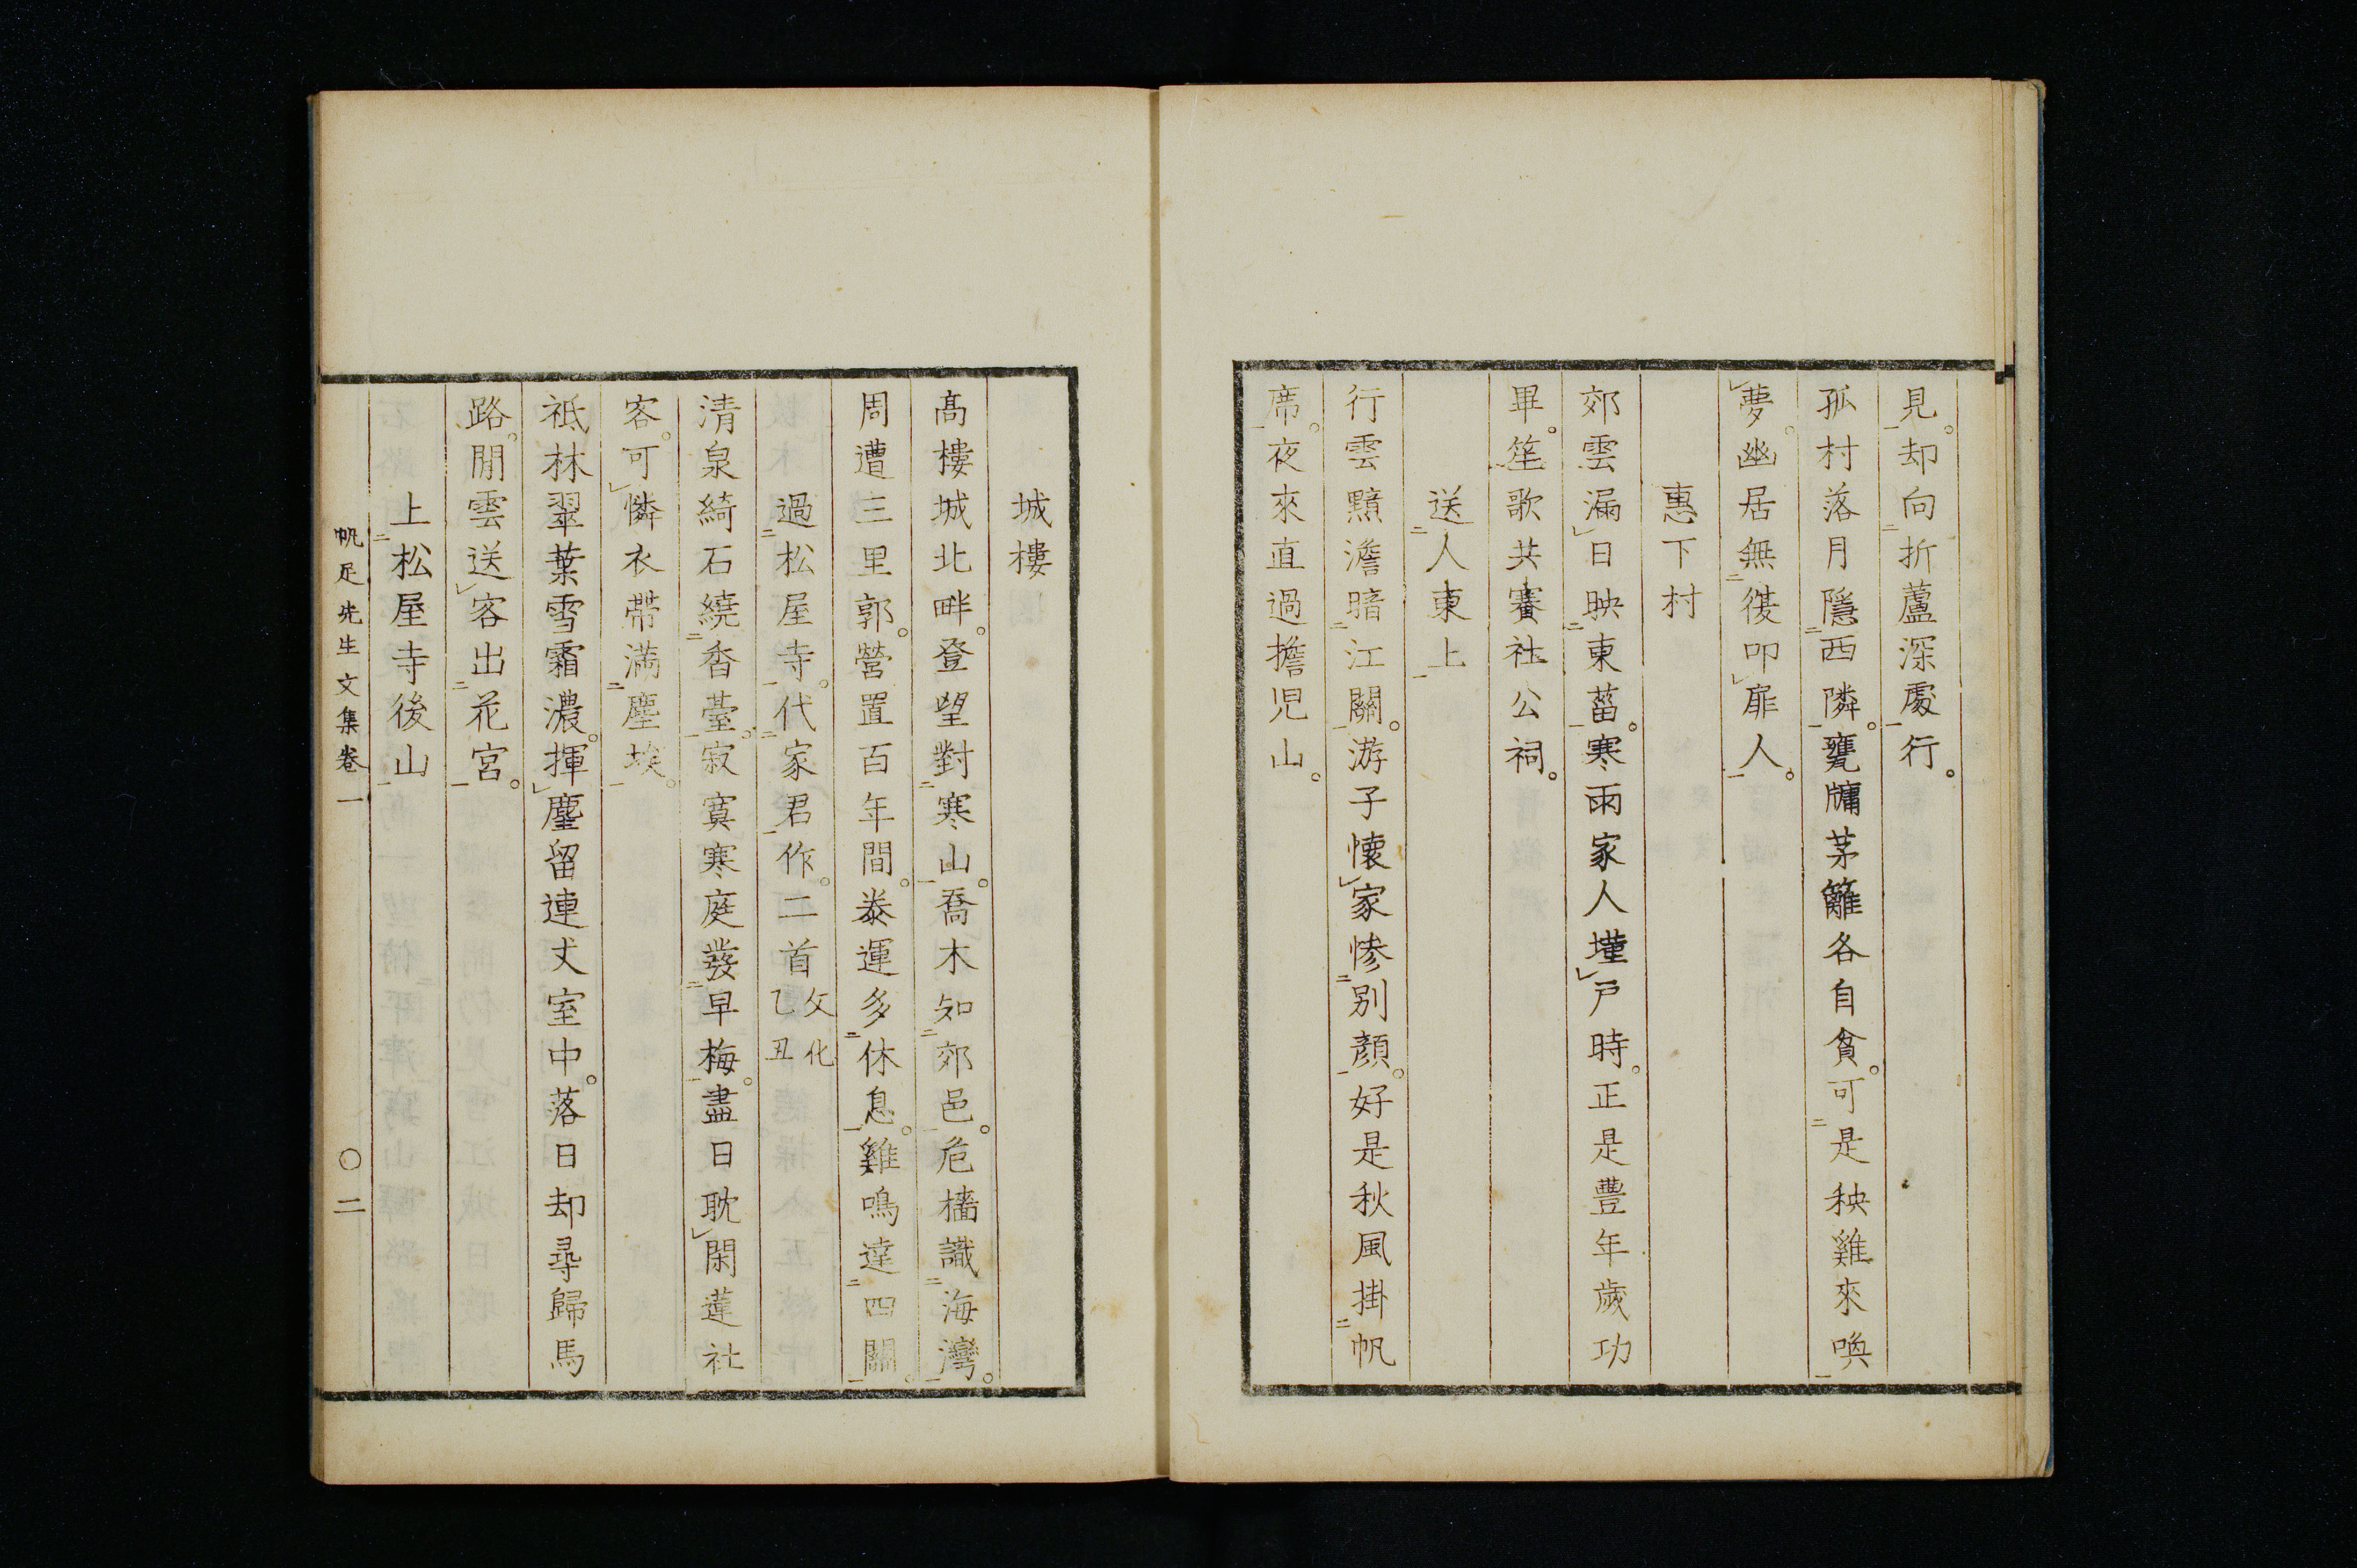 見。却向折蘆深處行。
孤村落月隱西隣。甕牖茅籬各自貧。可是秧雞來喚
夢。幽居無復叩扉人。
惠下村
郊雲漏日映東菑。寒雨家人墐戸時。正是豐年歲功
畢。笙歌共賽社公祠。
送人東上
行雲黯澹暗江關。游子懷家慘別顏。好是秋風掛帆
席。夜來直過擔児山。
城樓
高樓城北畔。登望對寒山。喬木知郊邑。危檣識海灣。
周遭三里郭。營置百年間。泰運多休息。雞鳴達四關。
過松屋寺。代家君作。二首文化乙丑
清泉綺石繞香臺。寂寞寒庭發早梅。盡日耽閑蓮社
客。可憐衣帶満塵埃。
祇林翠葉雪霜濃。揮麈留連丈室中。落日却尋歸馬
路。閒雲送客出花宮。
上松屋寺後山
帆足先生文集卷一
〇二